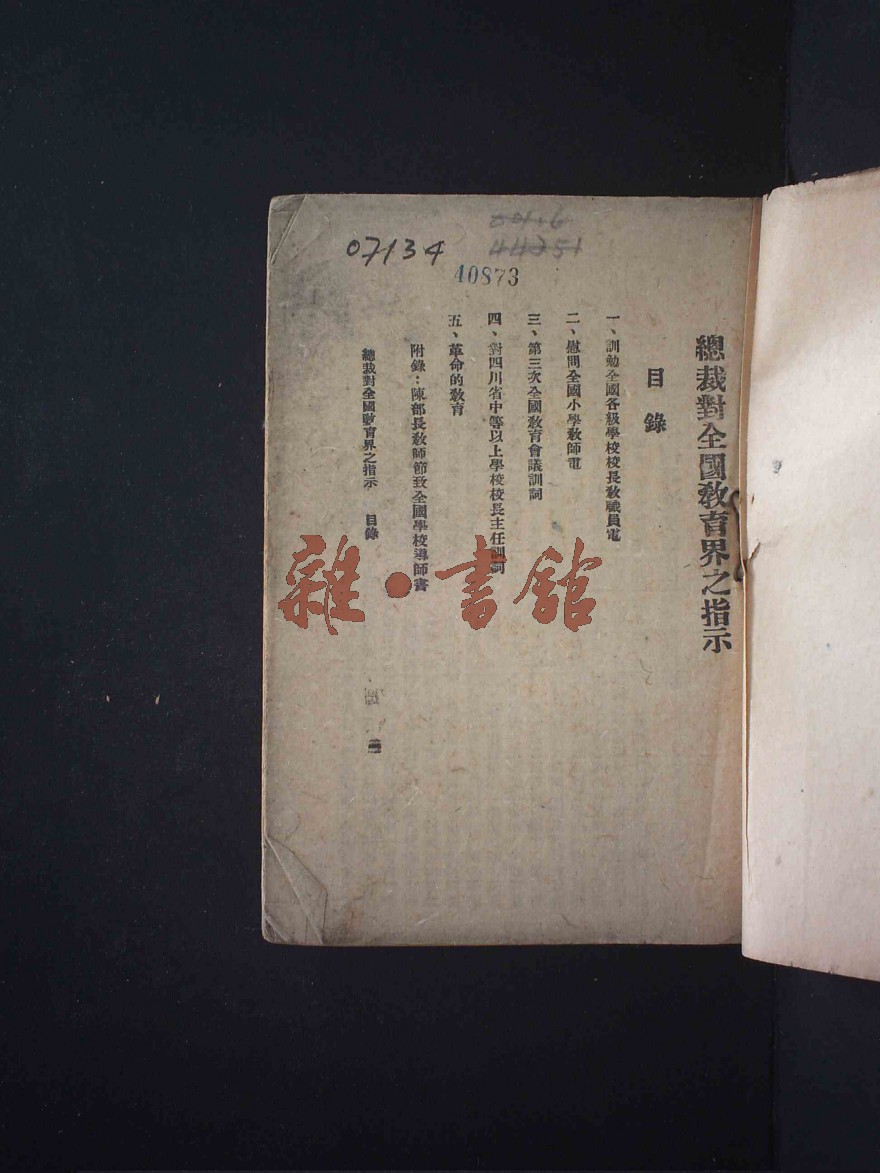 總裁對全國教育界之指示
目錄
一、訓勉全國各級學校校長教職員電
二、慰問全國小學教師電
三、第三次全國教育會議訓詞
四、對四川省中等以上學校校長主任訓詞
五、革命的教育
附錄：陳部長教師節致全國學校導師書
總裁對全國教育界之指示 目錄
07134
44251
40873
雜·書館